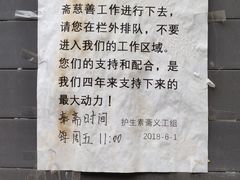 斋慈善工作进行下去，
请您在栏外排队，不要
进入我们的工作区域。
您们的支持和配合，是
我们四年来支持下来的
最大动力！
奉斋时间 护生素斋义工组
每周五 11:00 2018-6-1